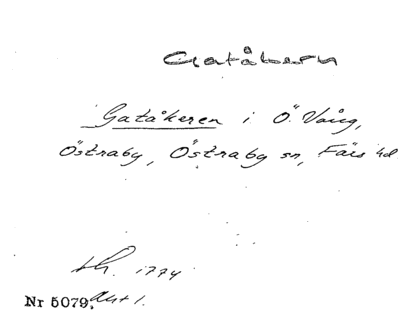 Gatåkern
Gatåkeren i Ö. Vång,
Östraby, Östraby sn, Färs hd
1774
Nr 5079. Akt 1.